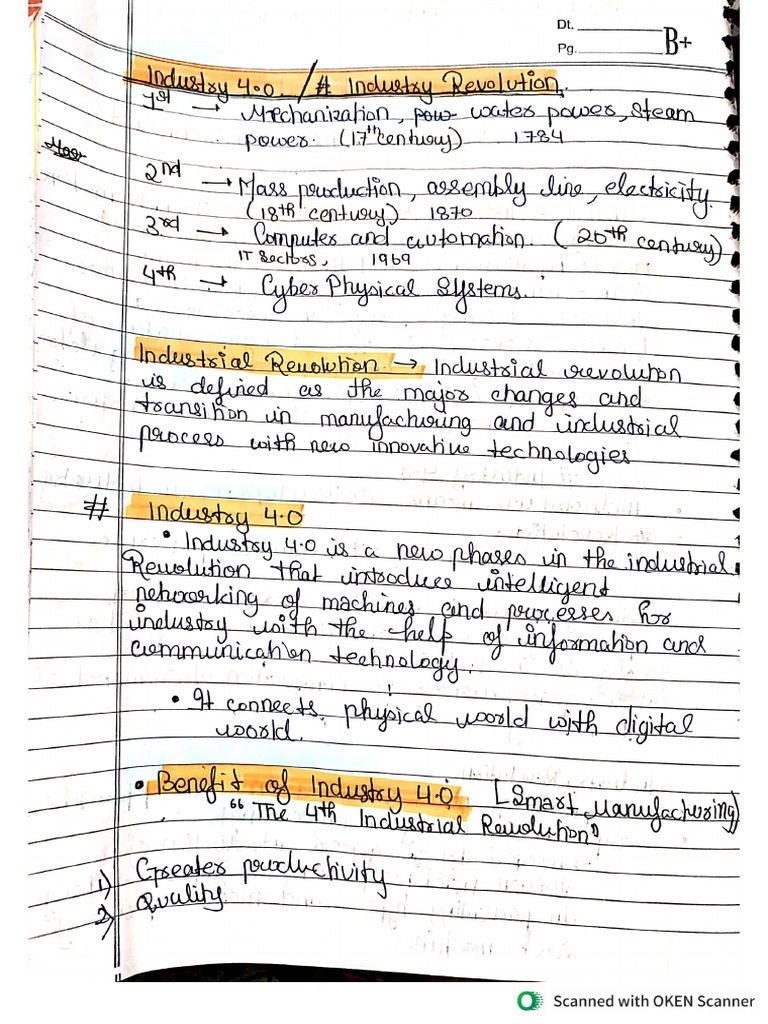 Dt.
Pg. B+
Industry 4.0. / # Industry Revolution.
1st → Mechanization, pow- water power, steam
power. (17th century) 1784
2nd → Mass production, assembly line, electricity.
(18th century) 1870
3rd → Computer and automation. (20th century)
IT Sectors, 1969
4th → Cyber Physical Systems.
Industrial Revolution → Industrial revolution
is defined as the major changes and
transition in manufacturing and industrial
process with new innovative technologies
# Industry 4.0
• Industry 4.0 is a new phases in the industrial
Revolution that introduce intelligent
networking of machines and processes for
industry with the help of information and
communication technology.
• It connects physical world with digital
world.
• Benefit of Industry 4.0 [Smart Manufacturing)
"The 4th Industrial Revolution"
1) Greater productivity
2) Quality
Scanned with OKEN Scanner